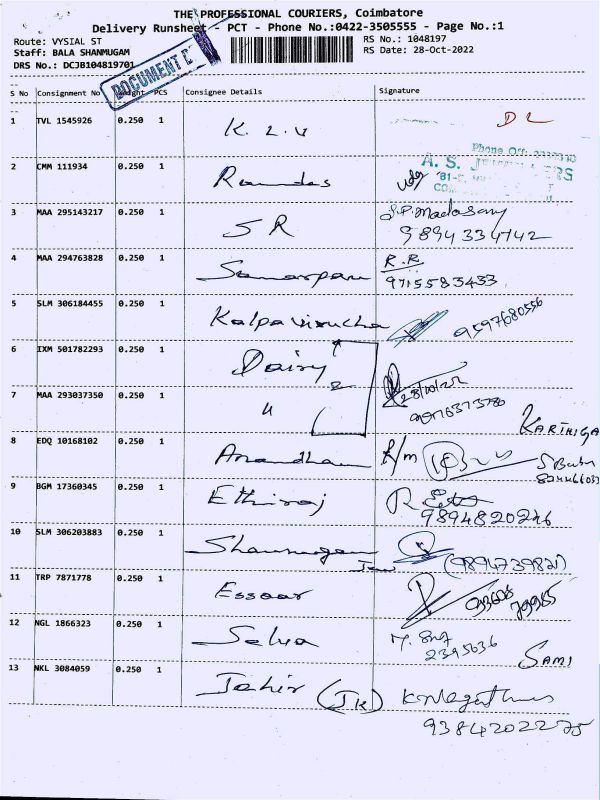 THE PROFESSIONAL COURIERS, Coimbatore
Delivery Runsheet - PCT - Phone No.:0422-3505555 - Page No.:1
Route: VYSIAL ST
Staff: BALA SHANMUGAM
DRS No.: DCJB104819701
RS No.: 1048197
RS Date: 28-Oct-2022
DOCUMENT
S No Consignment No PCS Consignee Details Signature
1 TVL 1545926 0.250 1 K. L. V DL
Phone Off:
A. S.
2 CMM 111934 0.250 1 Ramdas
3 MAA 295143217 0.250 1 S R S.P. Madasamy
9894334742
4 MAA 294763828 0.250 1 R.R
9715583433
5 SLM 306184455 0.250 1 Kalpavirucha 9597680556
6 IXM 501782293 0.250 1 Dairy 2 28/10/22
7 MAA 293037350 0.250 1 "
KARTHIGA
8 EDQ 10168102 0.250 1 Anandham R/m S Babu
9 BGM 17360345 0.250 1 Ethiraj
9894820246
10 SLM 306203883 0.250 1 Shanmugam (9894739821)
11 TRP 7871778 0.250 1 Essaar
12 NGL 1866323 0.250 1 Selva
2395636 SAMI
13 NKL 3084059 0.250 1 Jahir (JK)
9384202275